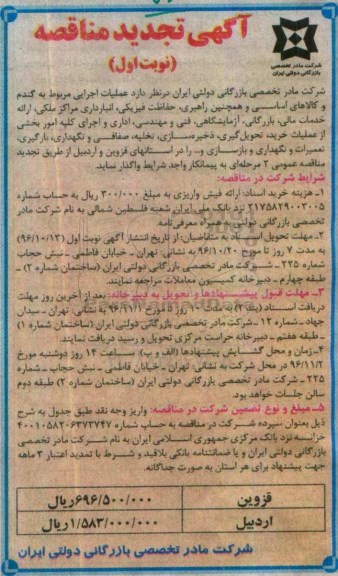 آگهی تجدید مناقصه
(نوبت اول)
شرکت مادر تخصصی
بازرگانی دولتی ایران
شرکت مادر تخصصی بازرگانی دولتی ایران درنظر دارد عملیات اجرایی مربوط به گندم
و کالاهای اساسی و همچنین راهبری، حفاظت فیزیکی، انبارداری مراکز ملکی، ارائه
خدمات مالی، بازرگانی، آزمایشگاهی، فنی و مهندسی، اداری و اجرای کلیه امور بخشی
از عملیات خرید، تحویل‌گیری، ذخیره‌سازی، تخلیه، صفافی و نگهداری، بارگیری،
تعمیرات و نگهداری و بازسازی و... را در استانهای قزوین و اردبیل از طریق تجدید
مناقصه عمومی ۲ مرحله‌ای به پیمانکار واجد شرایط واگذار نماید.
شرایط شرکت در مناقصه:
۱- هزینه خرید اسناد: ارائه فیش واریزی به مبلغ ۳۰۰/۰۰۰ ریال به حساب شماره
۲۱۷۵۸۲۹۰۰۳۰۰۵ نزد بانک ملی ایران شعبه فلسطین شمالی به نام شرکت مادر
تخصصی بازرگانی دولتی به همراه معرفی‌نامه.
۲- مهلت تحویل اسناد به متقاضیان: از تاریخ انتشار آگهی نوبت اول (۹۶/۱۰/۱۳)
به مدت ۷ روز تا مورخ ۹۶/۱۰/۲۰ به نشانی: تهران - خیابان فاطمی - نبش حجاب
شماره ۲۲۵ - شرکت مادر تخصصی بازرگانی دولتی ایران (ساختمان شماره ۲) -
طبقه چهارم - دبیرخانه کمیسیون معاملات مراجعه نمایند.
۳- مهلت قبول پیشنهادها و تحویل به دبیرخانه: بعد از آخرین روز مهلت
دریافت اسناد (بند۲) به مدت ۱۰ روز تا مورخ ۹۶/۱۱/۱ به نشانی: تهران - میدان
جهاد - شماره ۱۲ - شرکت مادر تخصصی بازرگانی دولتی ایران (ساختمان شماره ۱)
- طبقه هفتم - دبیرخانه حراست مرکزی تحویل و رسید دریافت نمایند.
۴- زمان و محل گشایش پیشنهادها (الف و ب): ساعت ۱۴ روز دوشنبه مورخ
۹۶/۱۱/۲ در محل شرکت به نشانی: تهران - خیابان فاطمی - نبش حجاب - شماره
۲۲۵ - شرکت مادر تخصصی بازرگانی دولتی ایران (ساختمان شماره ۲) طبقه دوم
سالن جلسات خواهد بود.
۵- مبلغ و نوع تضمین شرکت در مناقصه: واریز وجه نقد طبق جدول به شرح
ذیل بعنوان سپرده شرکت در مناقصه به حساب شماره ۴۰۰۱۰۵۸۲۰۶۳۷۳۷۴۷
خزانه نزد بانک مرکزی جمهوری اسلامی ایران به نام شرکت مادر تخصصی
بازرگانی دولتی ایران و یا ضمانتنامه بانکی بلاقید و شرط با تمدید اعتبار ۳ ماهه
جهت پیشنهاد برای هر استان به صورت جداگانه.
قزوین ۶۹۶/۵۰۰/۰۰۰ریال
اردبیل ۱/۵۸۳/۰۰۰/۰۰۰ریال
شرکت مادر تخصصی بازرگانی دولتی ایران